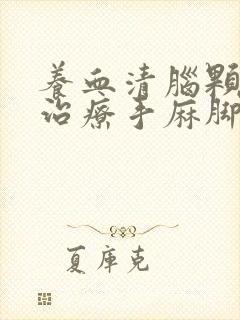 養血清腦顆
治療手麻脚
夏庫克